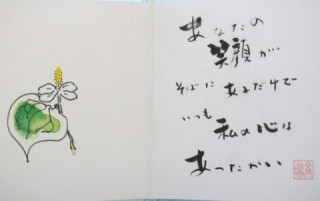 あなたの
笑顔が
そばにあるだけで
いつも
私の心は
あったかい